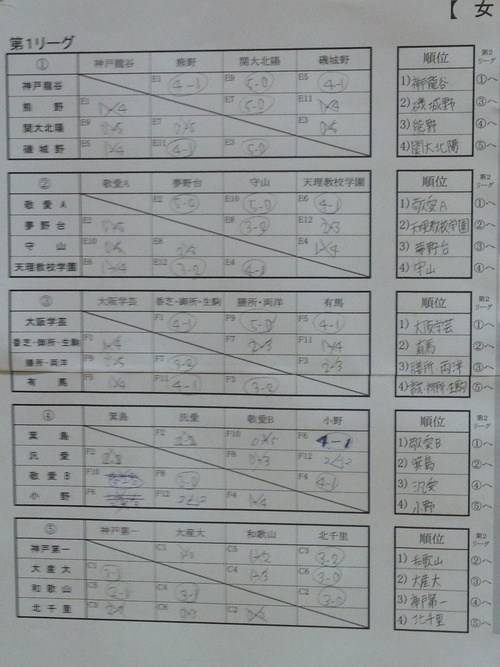 【 女
第1リーグ
① 神戸龍谷 熊野 関大北陽 磯城野 順位 第2リーグ
神戸龍谷 E1 4-1 E9 5-0 E5 4-1 1) 神龍谷 ①へ
熊 野 E1 1×4 E7 5-0 E11 1×4 2) 磯城野 ②へ
関大北陽 E9 0×5 E7 0×5 E3 0×5 3) 熊野 ④へ
磯 城 野 E5 1×4 E11 4-1 E3 5-0 4) 関大北陽 ⑤へ
② 敬愛A 夢野台 守山 天理教校学園 順位 第2リーグ
敬 愛 A E2 5-0 E10 5-0 E6 4-1 1) 敬愛A ①へ
夢 野 台 E2 0×5 E8 3-2 E12 2×3 2) 天理教校学園 ②へ
守 山 E10 0×5 E8 2×3 E4 1×4 3) 夢野台 ③へ
天理教校学園 E6 1×4 E12 3-2 E4 4-1 4) 守山 ④へ
③ 大阪学芸 香芝・御所・生駒 膳所・両洋 有馬 順位 第2リーグ
大阪学芸 F1 4-1 F9 5-0 F5 4-1 1) 大阪学芸 ①へ
香芝・御所・生駒 F1 1×4 F7 2×3 F11 1×4 2) 有馬 ②へ
膳所・両洋 F9 0×5 F7 3-2 F3 2×3 3) 膳所・両洋 ③へ
有 馬 F5 1×4 F11 4-1 F3 3-2 4)
④ 箕島 汎愛 敬愛B 小野 順位 第2リーグ
箕 島 F2 F10 0×5 F6 4-1 1) 敬愛B ①へ
汎 愛 F2 F8 F12 2 2 2) 箕島 ②へ
敬 愛 B F10 F8 5-0 F4 4-1 3) 汎愛 ③へ
小 野 F6 F12 2 2 F4 1×4 4) 小野 ⑤へ
⑤ 神戸第一 大産大 和歌山 北千里 順位 第2リーグ
神戸第一 C5 C3 3-2 1) 和歌山 ①へ
大 産 大 C4 C6 3-0 2) 大産大 ③へ
和 歌 山 C5 2-1 C4 3-1 C2 3-0 3) 神戸第一 ④へ
北 千 里 C3 C6 C2 4) 北千里 ⑤へ